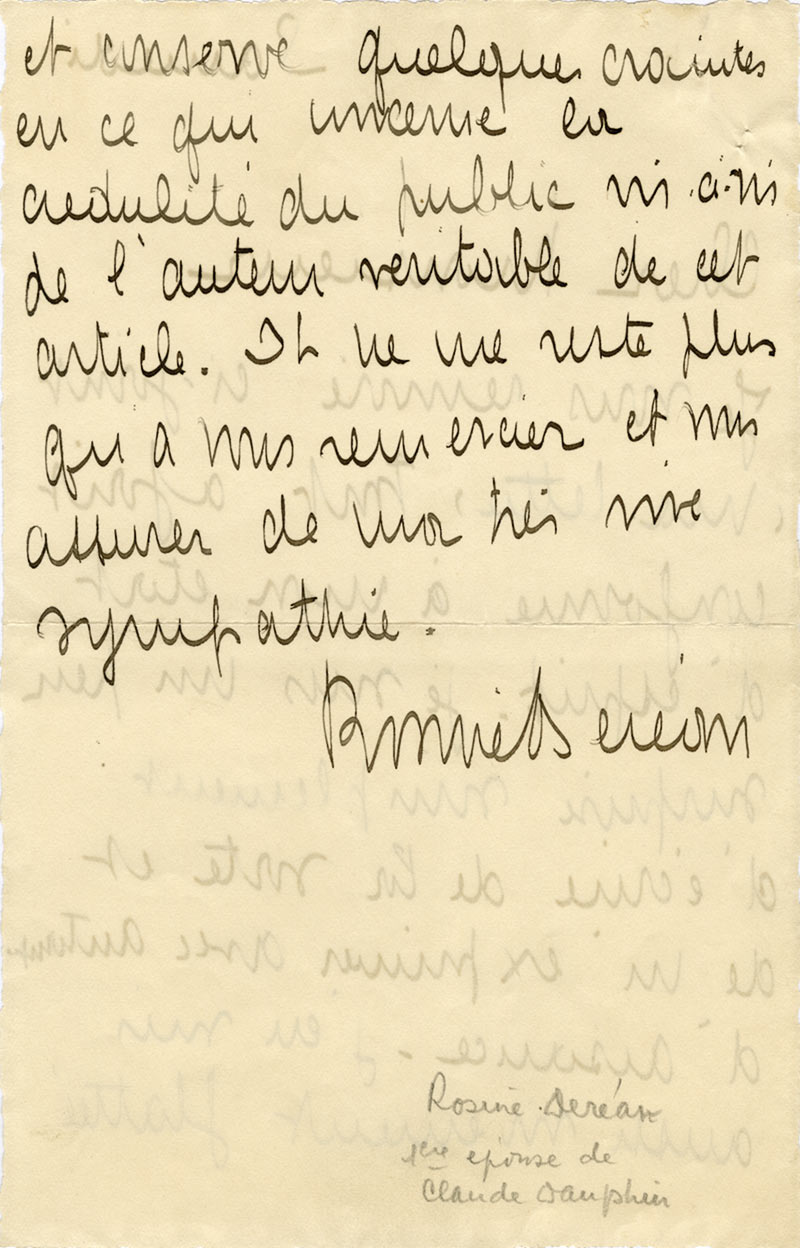 et conserve quelques craintes
en ce qui concerne la
credulité du public vis-à-vis
de l'auteur veritable de cet
article. Il ne me reste plus
qu'a vous remercier et vous
assurer de ma très vive
sympathie.
Rosine Deréan
Rosine Deréan
1ère epouse de
Claude Dauphin